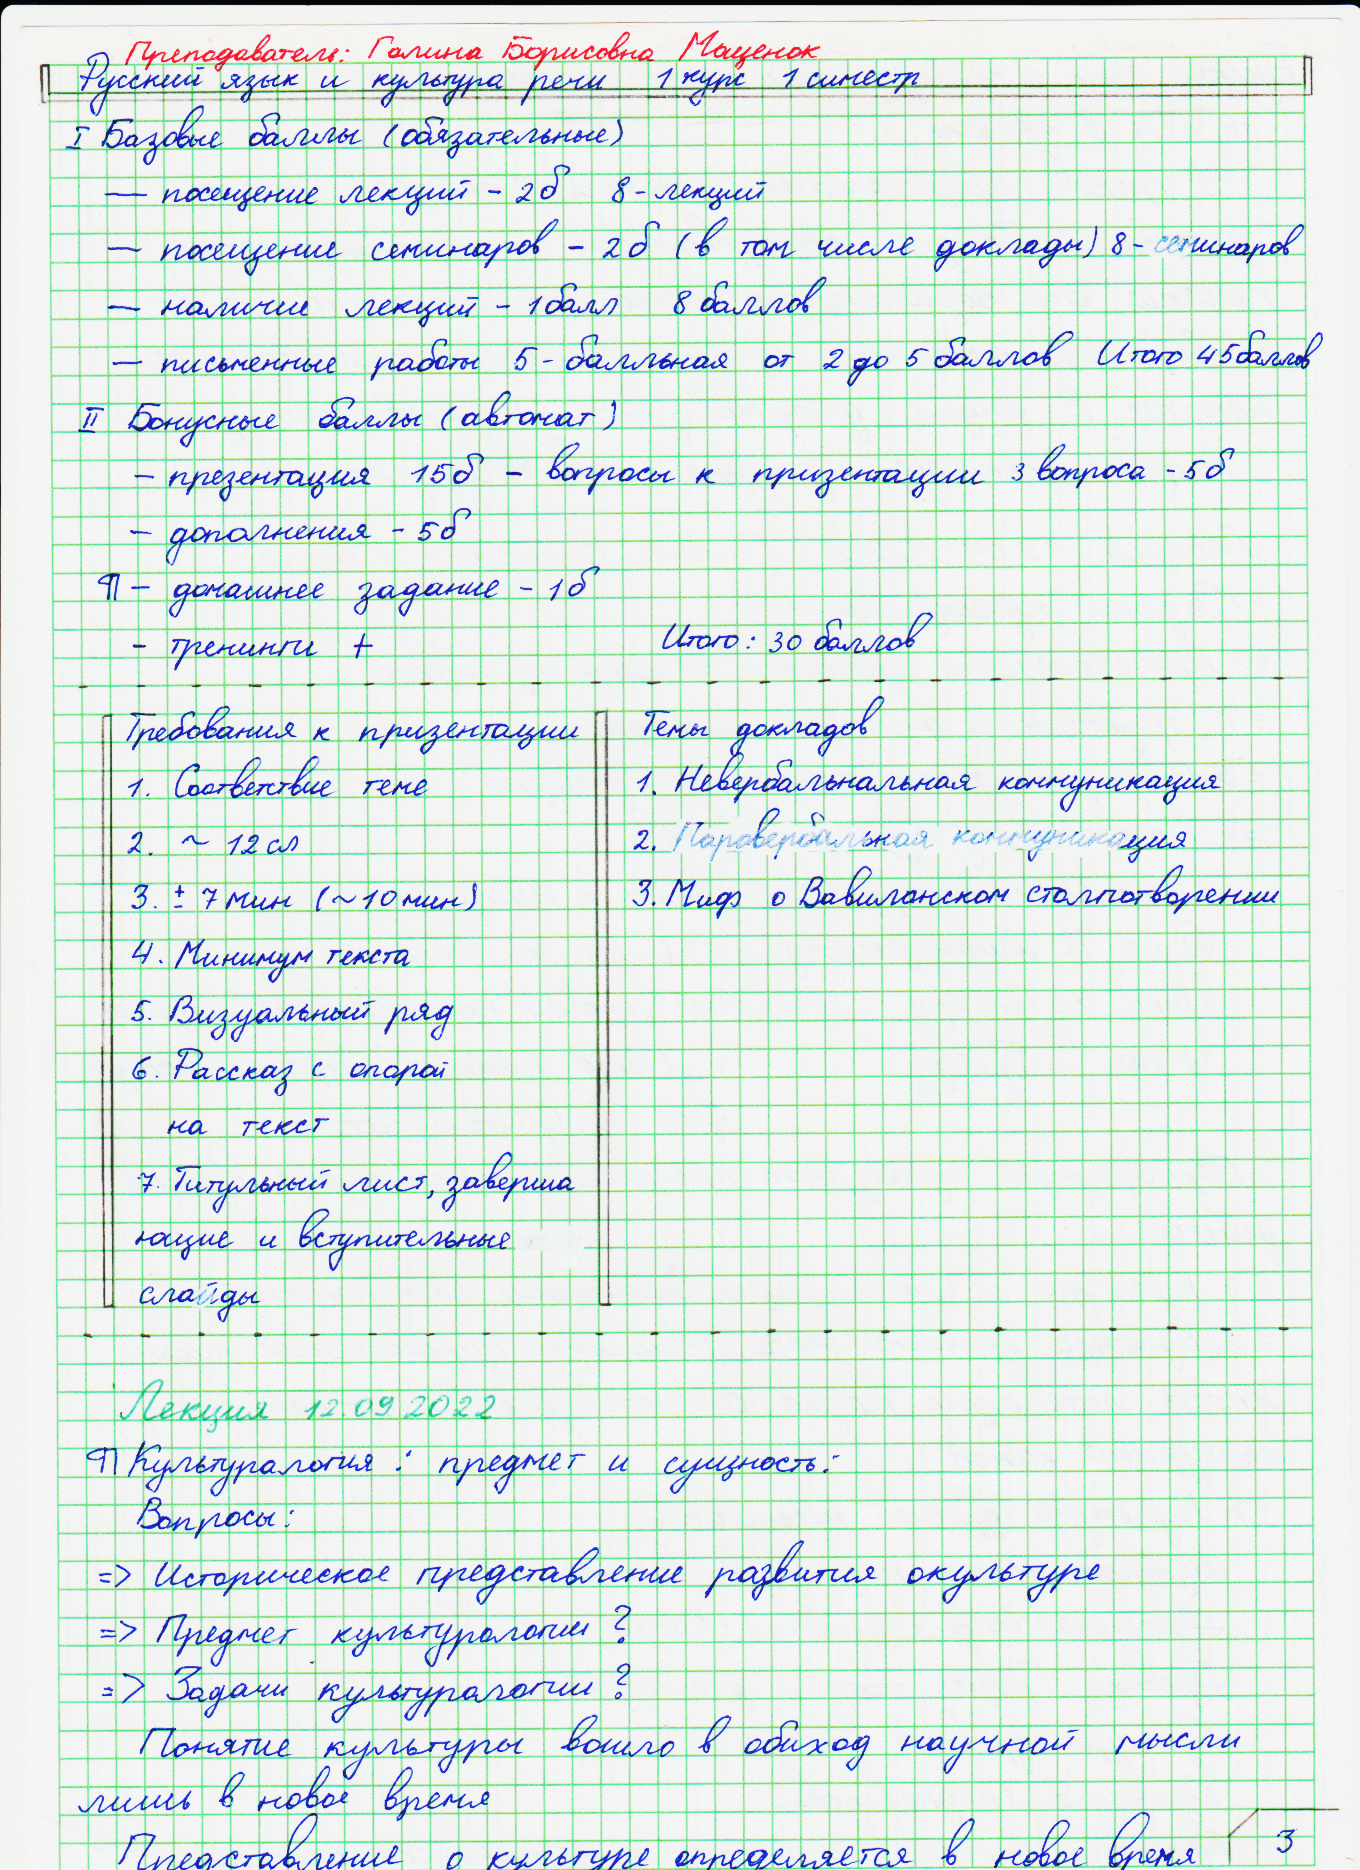 Преподаватель: Галина Борисовна Мащенок
Русский язык и культура речи 1 курс 1 симестр
I Базовые баллы (обязательные)
— посещение лекций - 2б 8 - лекций
— посещение семинаров - 2б (в том числе доклады) 8 - семинаров
— наличие лекций - 1 балл 8 баллов
— письменные работы 5 - балльная от 2 до 5 баллов Итого 45 баллов
II Бонусные баллы (автомат)
- презентация 15б - вопросы к призентации 3 вопроса - 5б
- дополнения - 5б
П - домашнее задание - 1б
- тренинги + Итого: 30 баллов
Требования к призентации
1. Соответствие теме
2. ~ 12 сл
3. ± 7 мин (~10 мин)
4. Минимум текста
5. Визуальный ряд
6. Рассказ с опорой
на текст
7. Титульный лист, заверша
ющие и вступительные
слайды
Темы докладов
1. Невербальнальная коммуникация
2. Паравербальная коммуникация
3. Миф о Вавилонском столпотворении
Лекция 12.09 2022
П Культуралогия: предмет и сущность:
Вопросы:
=> Историческое представление развития окультуре
=> Предмет культуралогии?
=> Задачи культуралогии?
Понятие культуры вошло в обиход научной мысли
лишь в новое время
Представление о культуре определяется в новое время
3